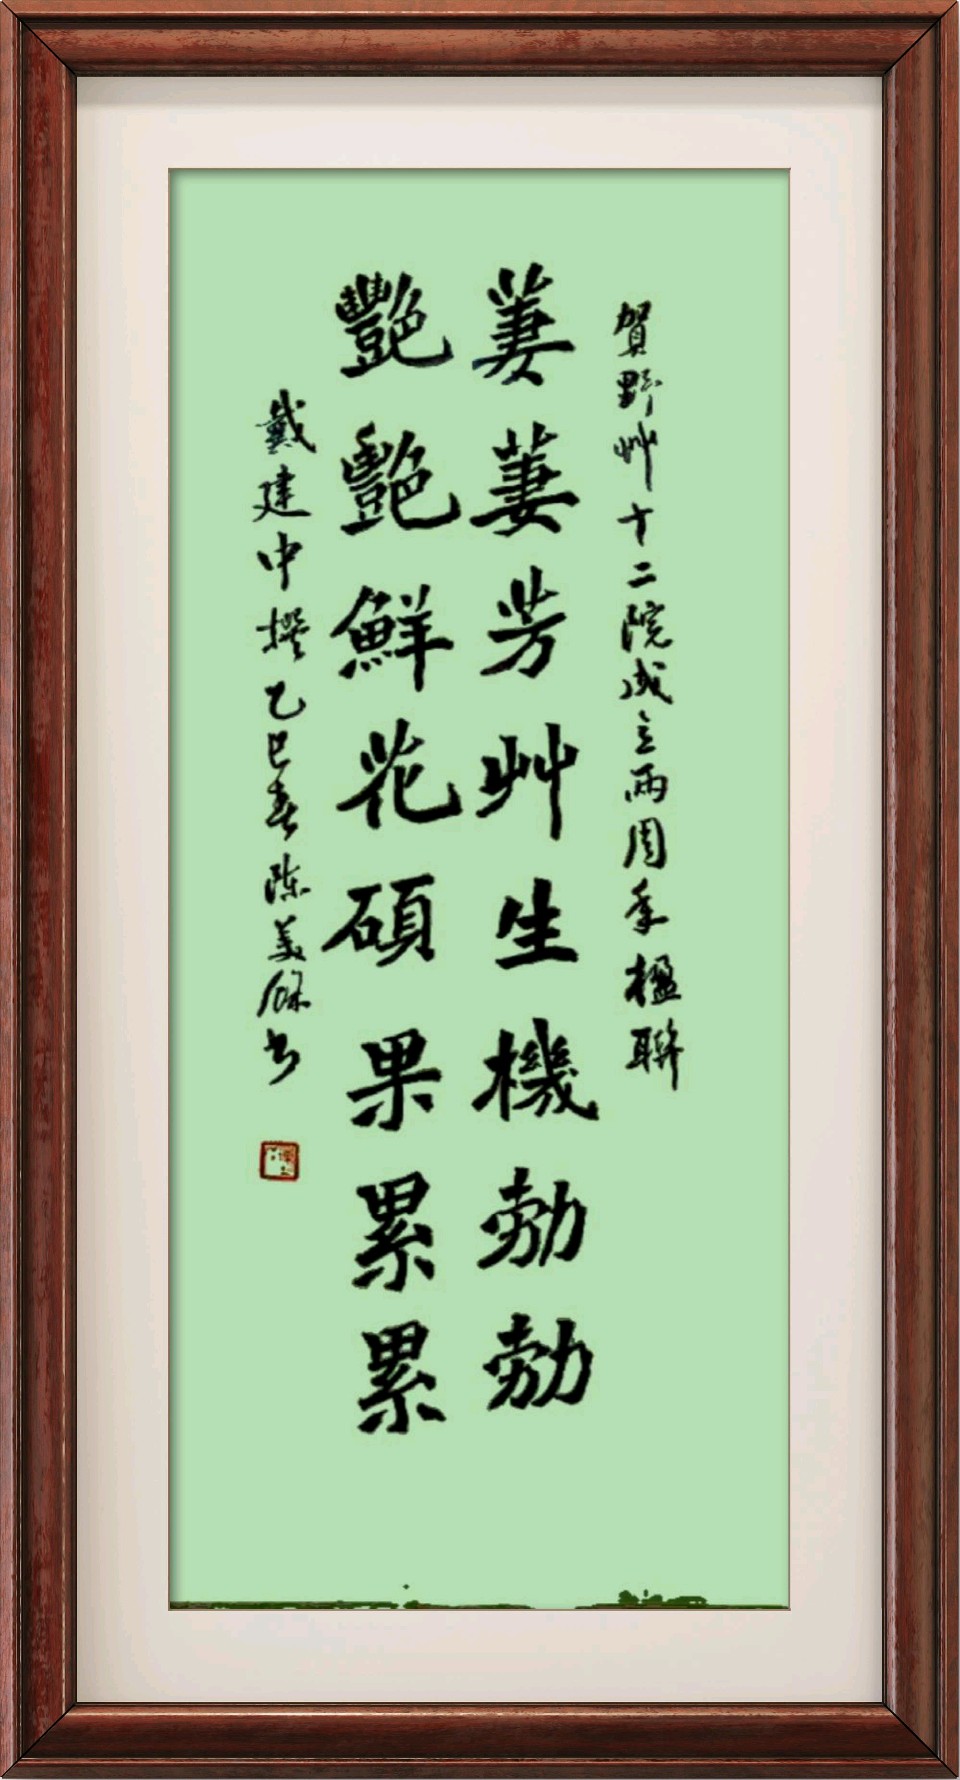 賀野艸十二院成立兩周年楹聯
萋萋芳艸生機勃勃
豔豔鮮花碩果累累
戴建中撰乙巳春陈美保书